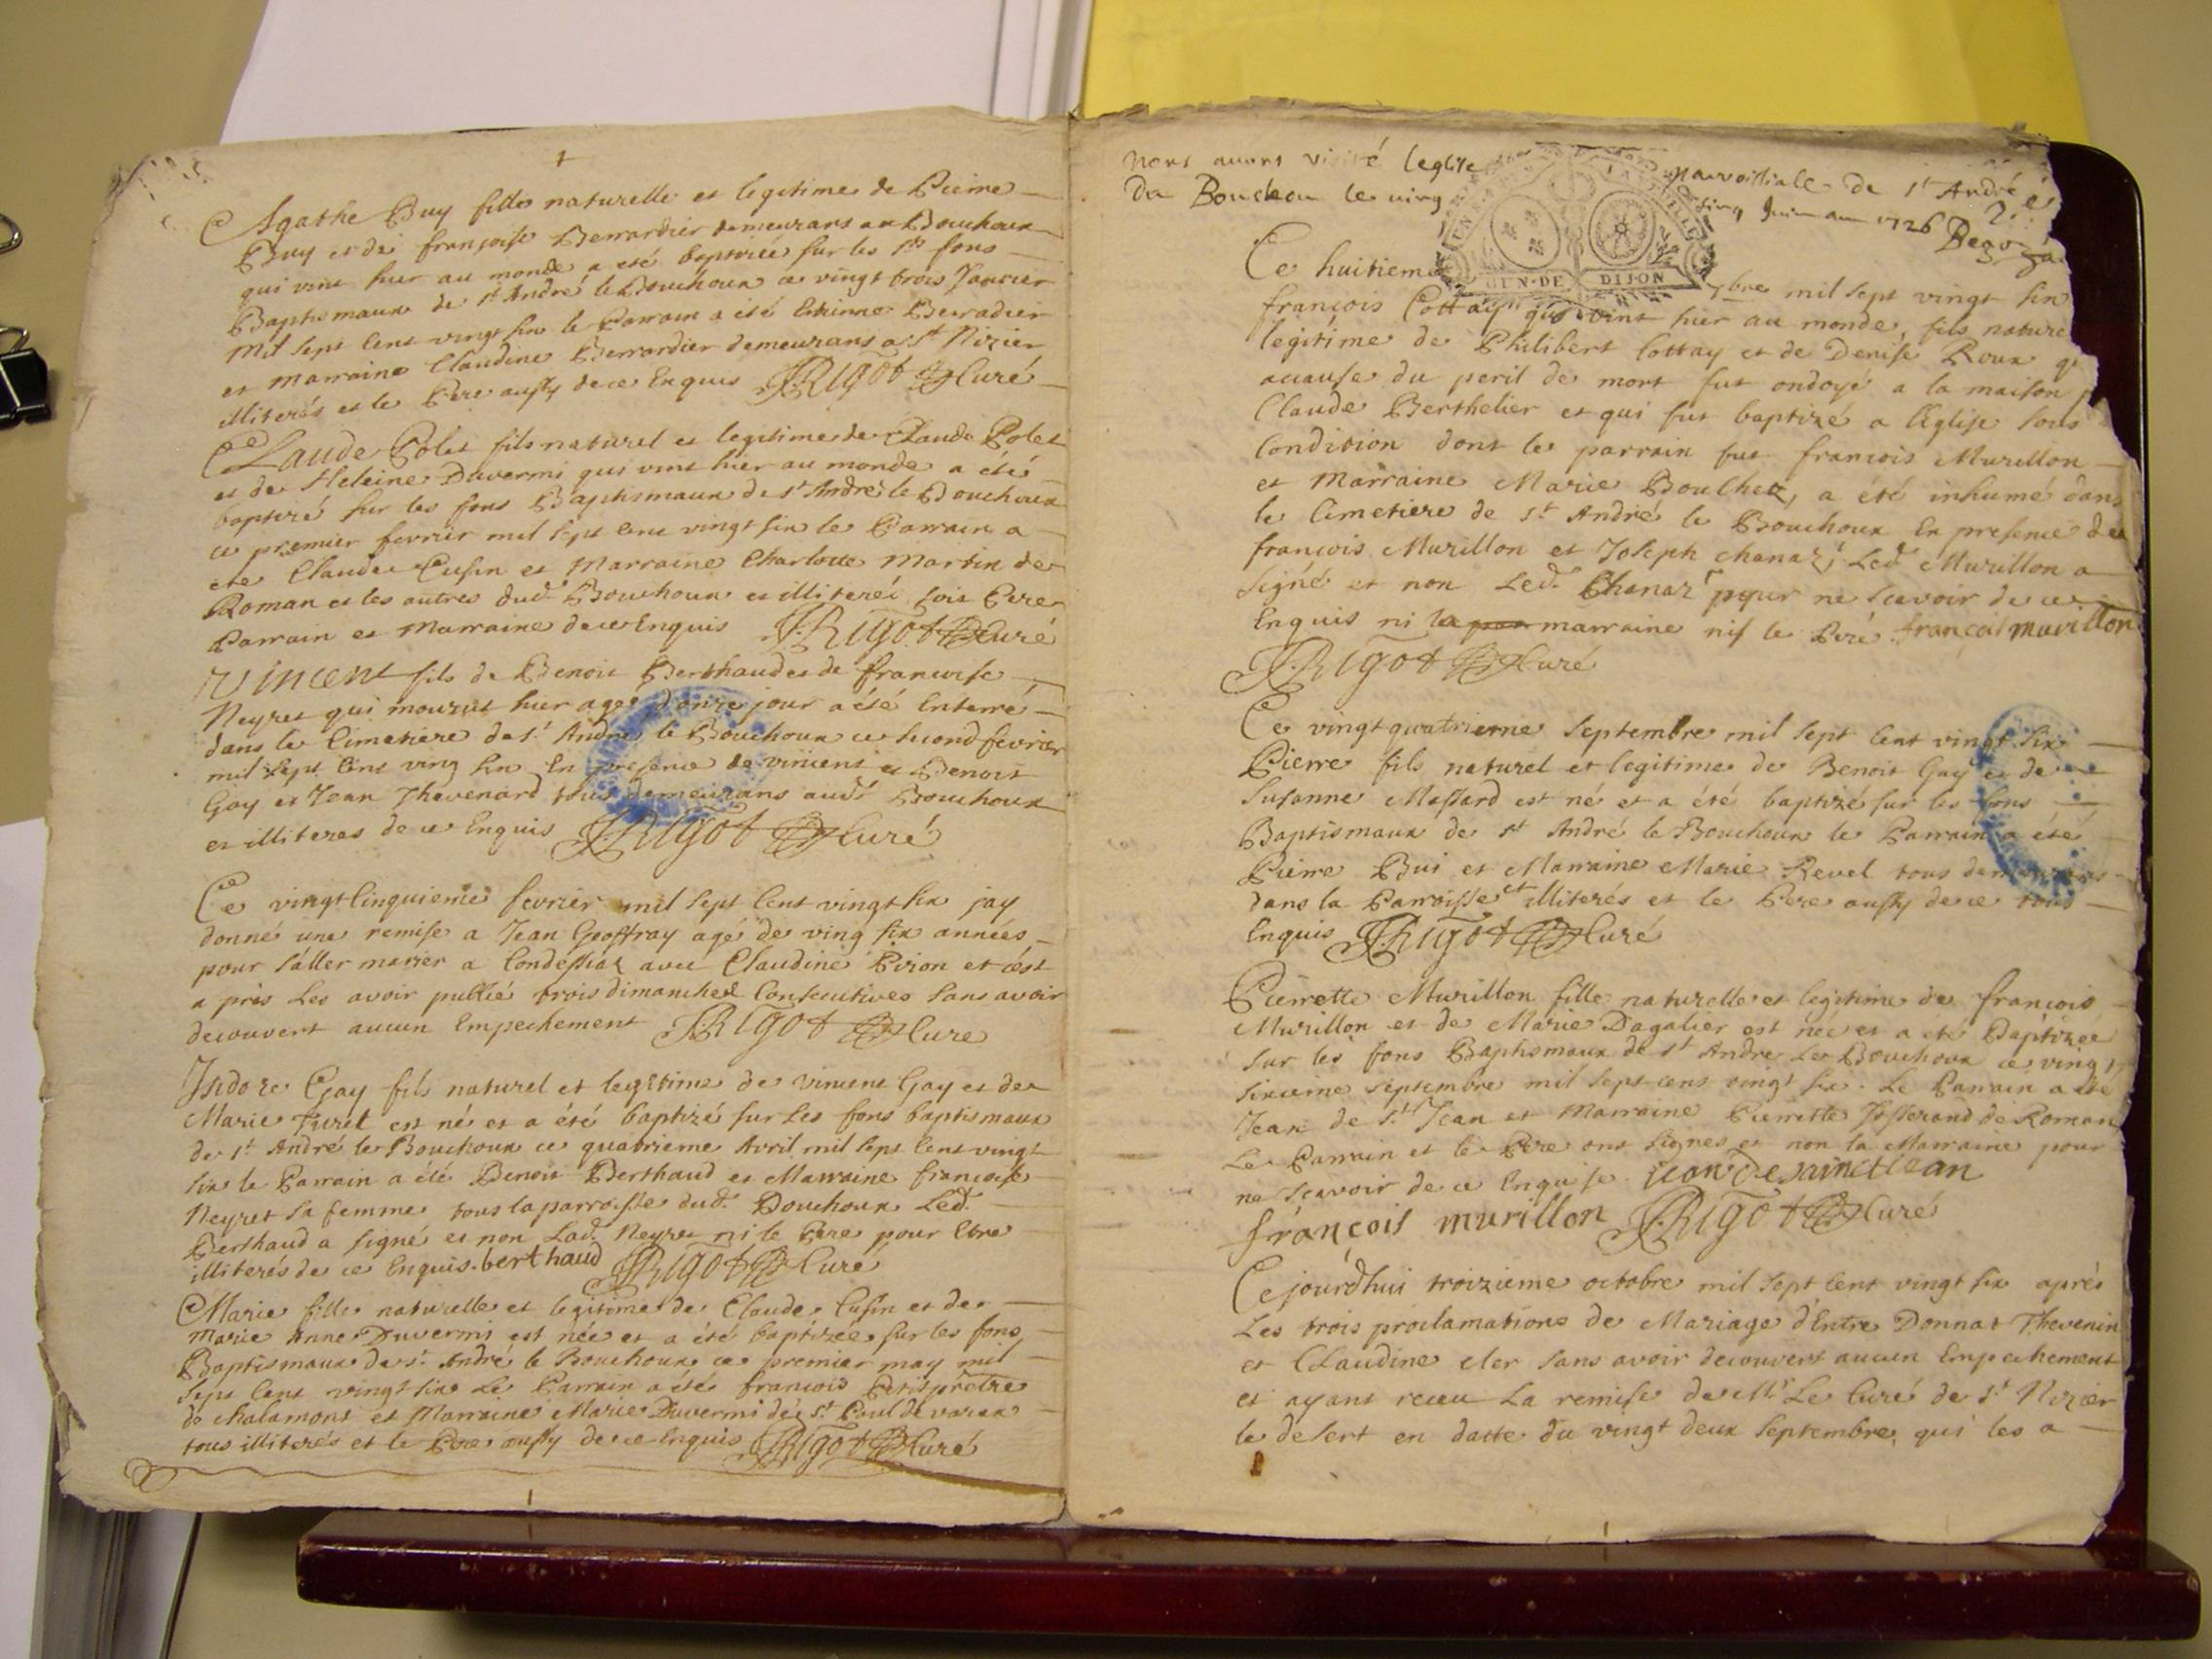 Agathe Buy fille naturelle et legitime de Pierre
Buy et de françoise Berrardier demeurans au Bouchoux
qui vint hier au monde a eté baptizée sur les sts fons
Baptismaux de st André le Bouchoux ce vingt trois Janvier
mil sept Cent vingt six le Parrain a été Etienne Berradier
et marraine Claudine Berrardier demeurans a st Nizier
illiterés et le Pere aussy de ce Enquis JRigot Curé
Claude Polet fils naturel et legitime de Claude Polet
et de Heleine Duvermi qui vint hier au monde a été
baptizé sur les fons Baptismaux de st André le Bouchoux
ce premier fevrier mil sept Cent vingt six le Parrain a
été Claude Cusin et Marraine Charlotte Martin de
Roman et les autres dud. Bouchoux et illiteré soit Pere
Parrain et Marraine de ce Enquis JRigot Curé
Vincent fils de Benoit Berthaud et de francoise
Neyret qui mourut hier agée d'onze jour a été Enterré
dans le Cimetiere de st André le Bouchoux ce second fevrier
mil sept Cent ving six En presence de vincent et Benoit
Gay et Jean Thevenard tous demeurans audt Bouchoux
et illiteres de ce Enquis JRigot Curé
Ce vingt Cinquieme fevrier mil sept Cent vingt six jay
donné une remise a Jean Geoffray agé de ving six années
pour s'aller marier a Condessiaz avec Claudine Piron et c'est
a près Les avoir publié trois dimanches Consecutives sans avoir
decouvert aucun Empechement JRigot Cure
Isidore Gay fils naturel et legitime de vincent Gay et de
Marie Turet est né et a été baptizé sur Les fons baptismaux
de st André le Bouchoux ce quatrieme Avril mil sept Cent vingt
six le Parrain a été Benoit Berthaud et Marraine francoise
Neyret sa femme tous la parroisse dud. Bouchoux Led.
Berthaud a signé et non Lad. Neyret ni le Pere pour Etre
illiterés de ce Enquis. berthaud JRigot Curé
Marie fille naturelle et legitime de Claude Cusin et de
Marie Anne Duvermi est née et a été baptizée sur les fons
Baptismaux de st André le Bouchoux ce premier may mil
sept Cent vingt six Le Parrain a été francois Petisprêtre
de chalamont et Marraine Marie Duvermi de st Paul de varax
tous illiterés et le Pere aussy de ce Enquis JRigot Curé
nous avons visité leglise parroissiale de st André
Du Bouchou le ving cinq Juin an 1726
GEN·DE DIJON
Ce huitieme 7bre mil sept vingt six
françois Cottay qui vint hier au monde, fils nature
legitime de Philibert Cottay et de Denise Roux
acause du peril de mort fut ondoyé a la maison
Claude Berthelier et qui fut baptizé a l'Eglise sous
Condition dont le parrain fut francois Murillon
et Marraine Marie Boulhez, a été inhumé dans
le Cimetiere de st André le Bouchoux En presence de
francois Murillon et Joseph chanaz, Led Murillon a
signé et non Led. Chanaz pour ne scavoir de ce
Enquis ni la marraine nis le Peré. françois murillon
JRigot Curé
Ce vingt quatrieme septembre mil sept Cent vingt six
Pierre fils naturel et legitime de Benoit Gay et de
Susanne Massard est né et a été baptizé sur les fons
Baptismaux de st André le Bouchoux le Parrain a été
Pierre Bui et Marraine Marie Revel tous demeurans
dans la Parroisse et illiterés et le Pere aussy de ce tous
Enquis JRigot Curé
Pierrette Murillon fille naturelle et legitime de francois
Murillon et de Marie Dagalier est née et a été Baptizee
sur les fons Baptismaux de st André Le Bouchoux ce vingt
sixieme septembre mil sept cens vingt six. Le Parrain a été
Jean de St Jean et Marraine Pierrette Josserand de Roman
Le Parrain et le Pere ont signes et non la Marraine pour
ne scavoir de ce Enquise jean de sainct jean
françois murillon JRigot Curé
Cejourdhui troizieme octobre mil sept Cent vingt six après
Les trois proclamations de Mariage d'Entre Donnat Thevenin
et Claudine cler sans avoir decouvert aucun Empechement
et ayant receu La remise de Mr Le Curé de st Nizier
le desert en datte du vingt deux septembre, qui les a